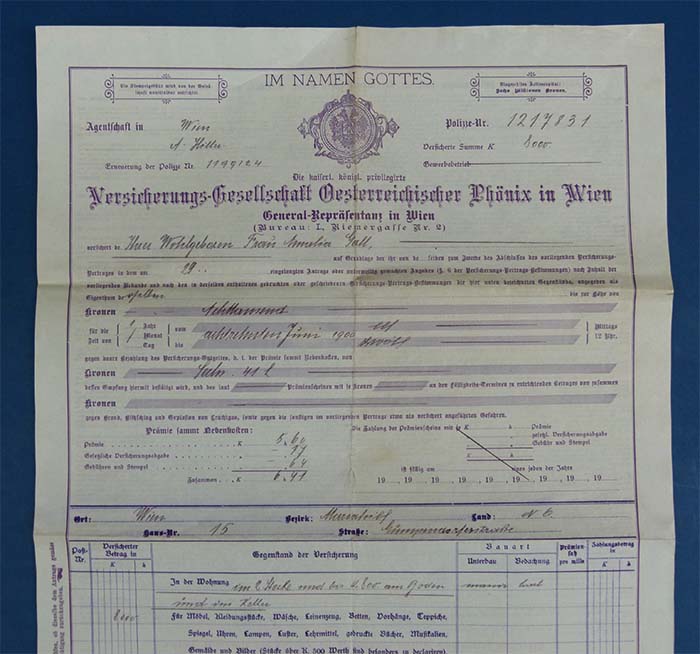 IM NAMEN GOTTES.
Die Stempelgebühr wird von der Gesellschaft unmittelbar entrichtet.
Eingezahltes Actiencapital:
Sechs Millionen Kronen.
Agentschaft in Wien
Polizze-Nr. 1217831
A. Höller
Versicherte Summe K 8000.
Erneuerung der Polizze Nr. 1199124
Gewerbebetrieb
Die kaiserl. königl. privilegirte
Versicherungs-Gesellschaft Oesterreichischer Phönix in Wien
General-Repräsentanz in Wien
(Bureau: I., Riemergasse Nr. 2)
versichert de Ihrer Wohlgeboren Frau Amelia Gall
auf Grundlage der ihr von de selben zum Zwecke des Abschlusses des vorliegenden Versicherungs-
Vertrages in dem am 29. eingelangten Antrage oder anderweitig gemachten Angaben (§. 6 der Versicherungs-Vertrags-Bestimmungen) nach Inhalt der
vorliegenden Urkunde und nach den in derselben enthaltenen gedruckten oder geschriebenen Versicherungs-Vertrags-Bestimmungen die hier unten bezeichneten Gegenstände, angegeben als
Eigenthum de bis zur Höhe von
Kronen Achttausend
für die Zeit von 1 Jahr Monat Tag vom achtzehnten Juni 190 bis zwölf Mittags 12 Uhr.
gegen baare Bezahlung des Versicherungs-Entgeltes, d. i. der Prämie sammt Nebenkosten, von
Kronen Sechs 41 h
dessen Empfang hiermit bestätigt wird, und des laut Prämienscheinen mit je Kronen an den Fälligkeits-Terminen zu entrichtenden Betrages von zusammen
Kronen
gegen Brand, Blitzschlag und Explosion von Leuchtgas, sowie gegen die sonstigen im vorliegenden Vertrage etwa als versichert angeführten Gefahren.
Prämie sammt Nebenkosten:
Prämie K 5.60
Gesetzliche Versicherungsabgabe —.17
Gebühren und Stempel —.64
Zusammen K 6.41
Die Zahlung der Prämienscheine mit je K h Prämie
K h gesetzl. Versicherungsabgabe
Gebühr und Stempel
ist fällig am eines jeden der Jahre
19 19 19 19 19 19 19
Ort: Wien Bezirk: Land: N. Ö.
Haus-Nr. 15 Straße: Gumpendorferstraße
Post-Nr.
Versicherter Betrag in
K h
Gegenstand der Versicherung
Bauart
Unterbau Bedachung
Prämiensatz per mille
Zahlungsbetrag in
K h
In der Wohnung im 2. Stocke und bis K. 800 am Boden
und im Keller
8000
Für Möbel, Kleidungsstücke, Wäsche, Leinenzeug, Betten, Vorhänge, Teppiche,
Spiegel, Uhren, Lampen, Luster, Lehrmittel, gedruckte Bücher, Musikalien,
Gemälde und Bilder (Stücke über K. 500 Werth sind besonders zu declariren),